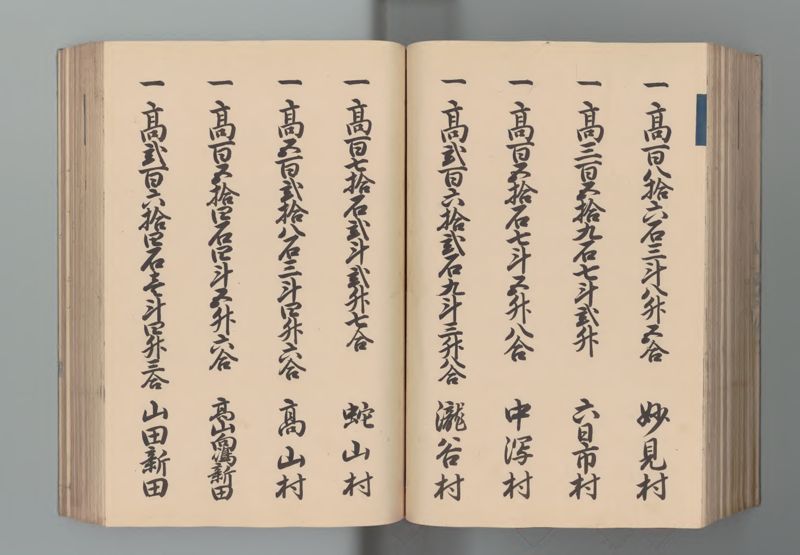 一高百八拾六石三斗八升五合 妙見村
一高三百五拾九石七斗弐升 六日市村
一高百五拾石七斗五升八合 中潟村
一高弐百六拾弐石九斗三升八合 瀧谷村
一高百七拾石弐斗弐升七合 蛇山村
一高五百弐拾八石三斗四升六合 高山村
一高百五拾四石四斗五升六合 高山 新田
一高弐百六拾四石壱斗四升三合 山田新田